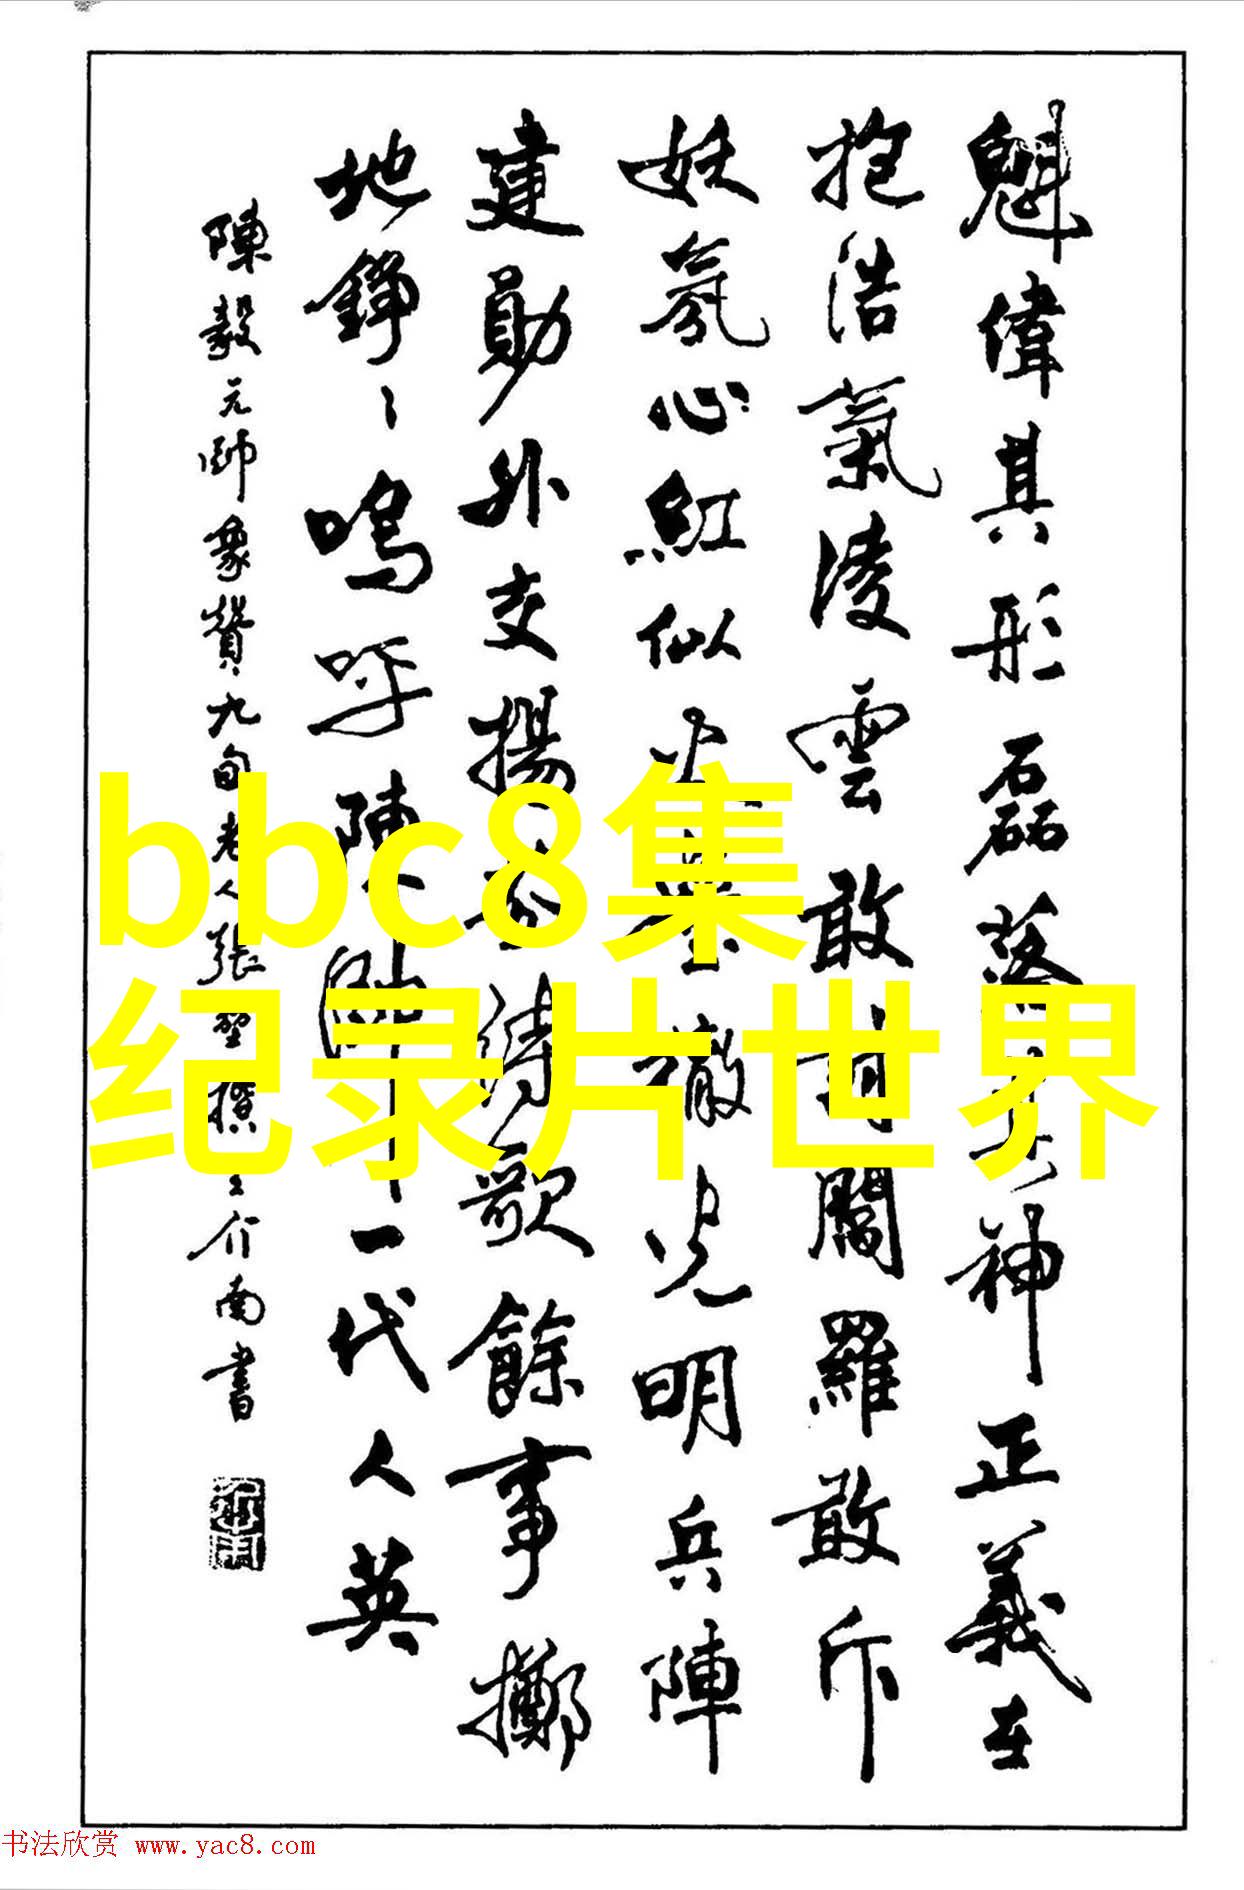 魁偉其形磊落其神正義在
抱浩氣凌雲敢朝闔羅敢斥
妖氛心紅似火徹光明兵陣
建勛外交揚詩歌餘事擲
地錚々嗚呼陳帥一代人英
陳毅元帥象贊九旬老人張聖撰王介南書
bbc8集
纪录片世界
书法欣赏 www.yac8.com